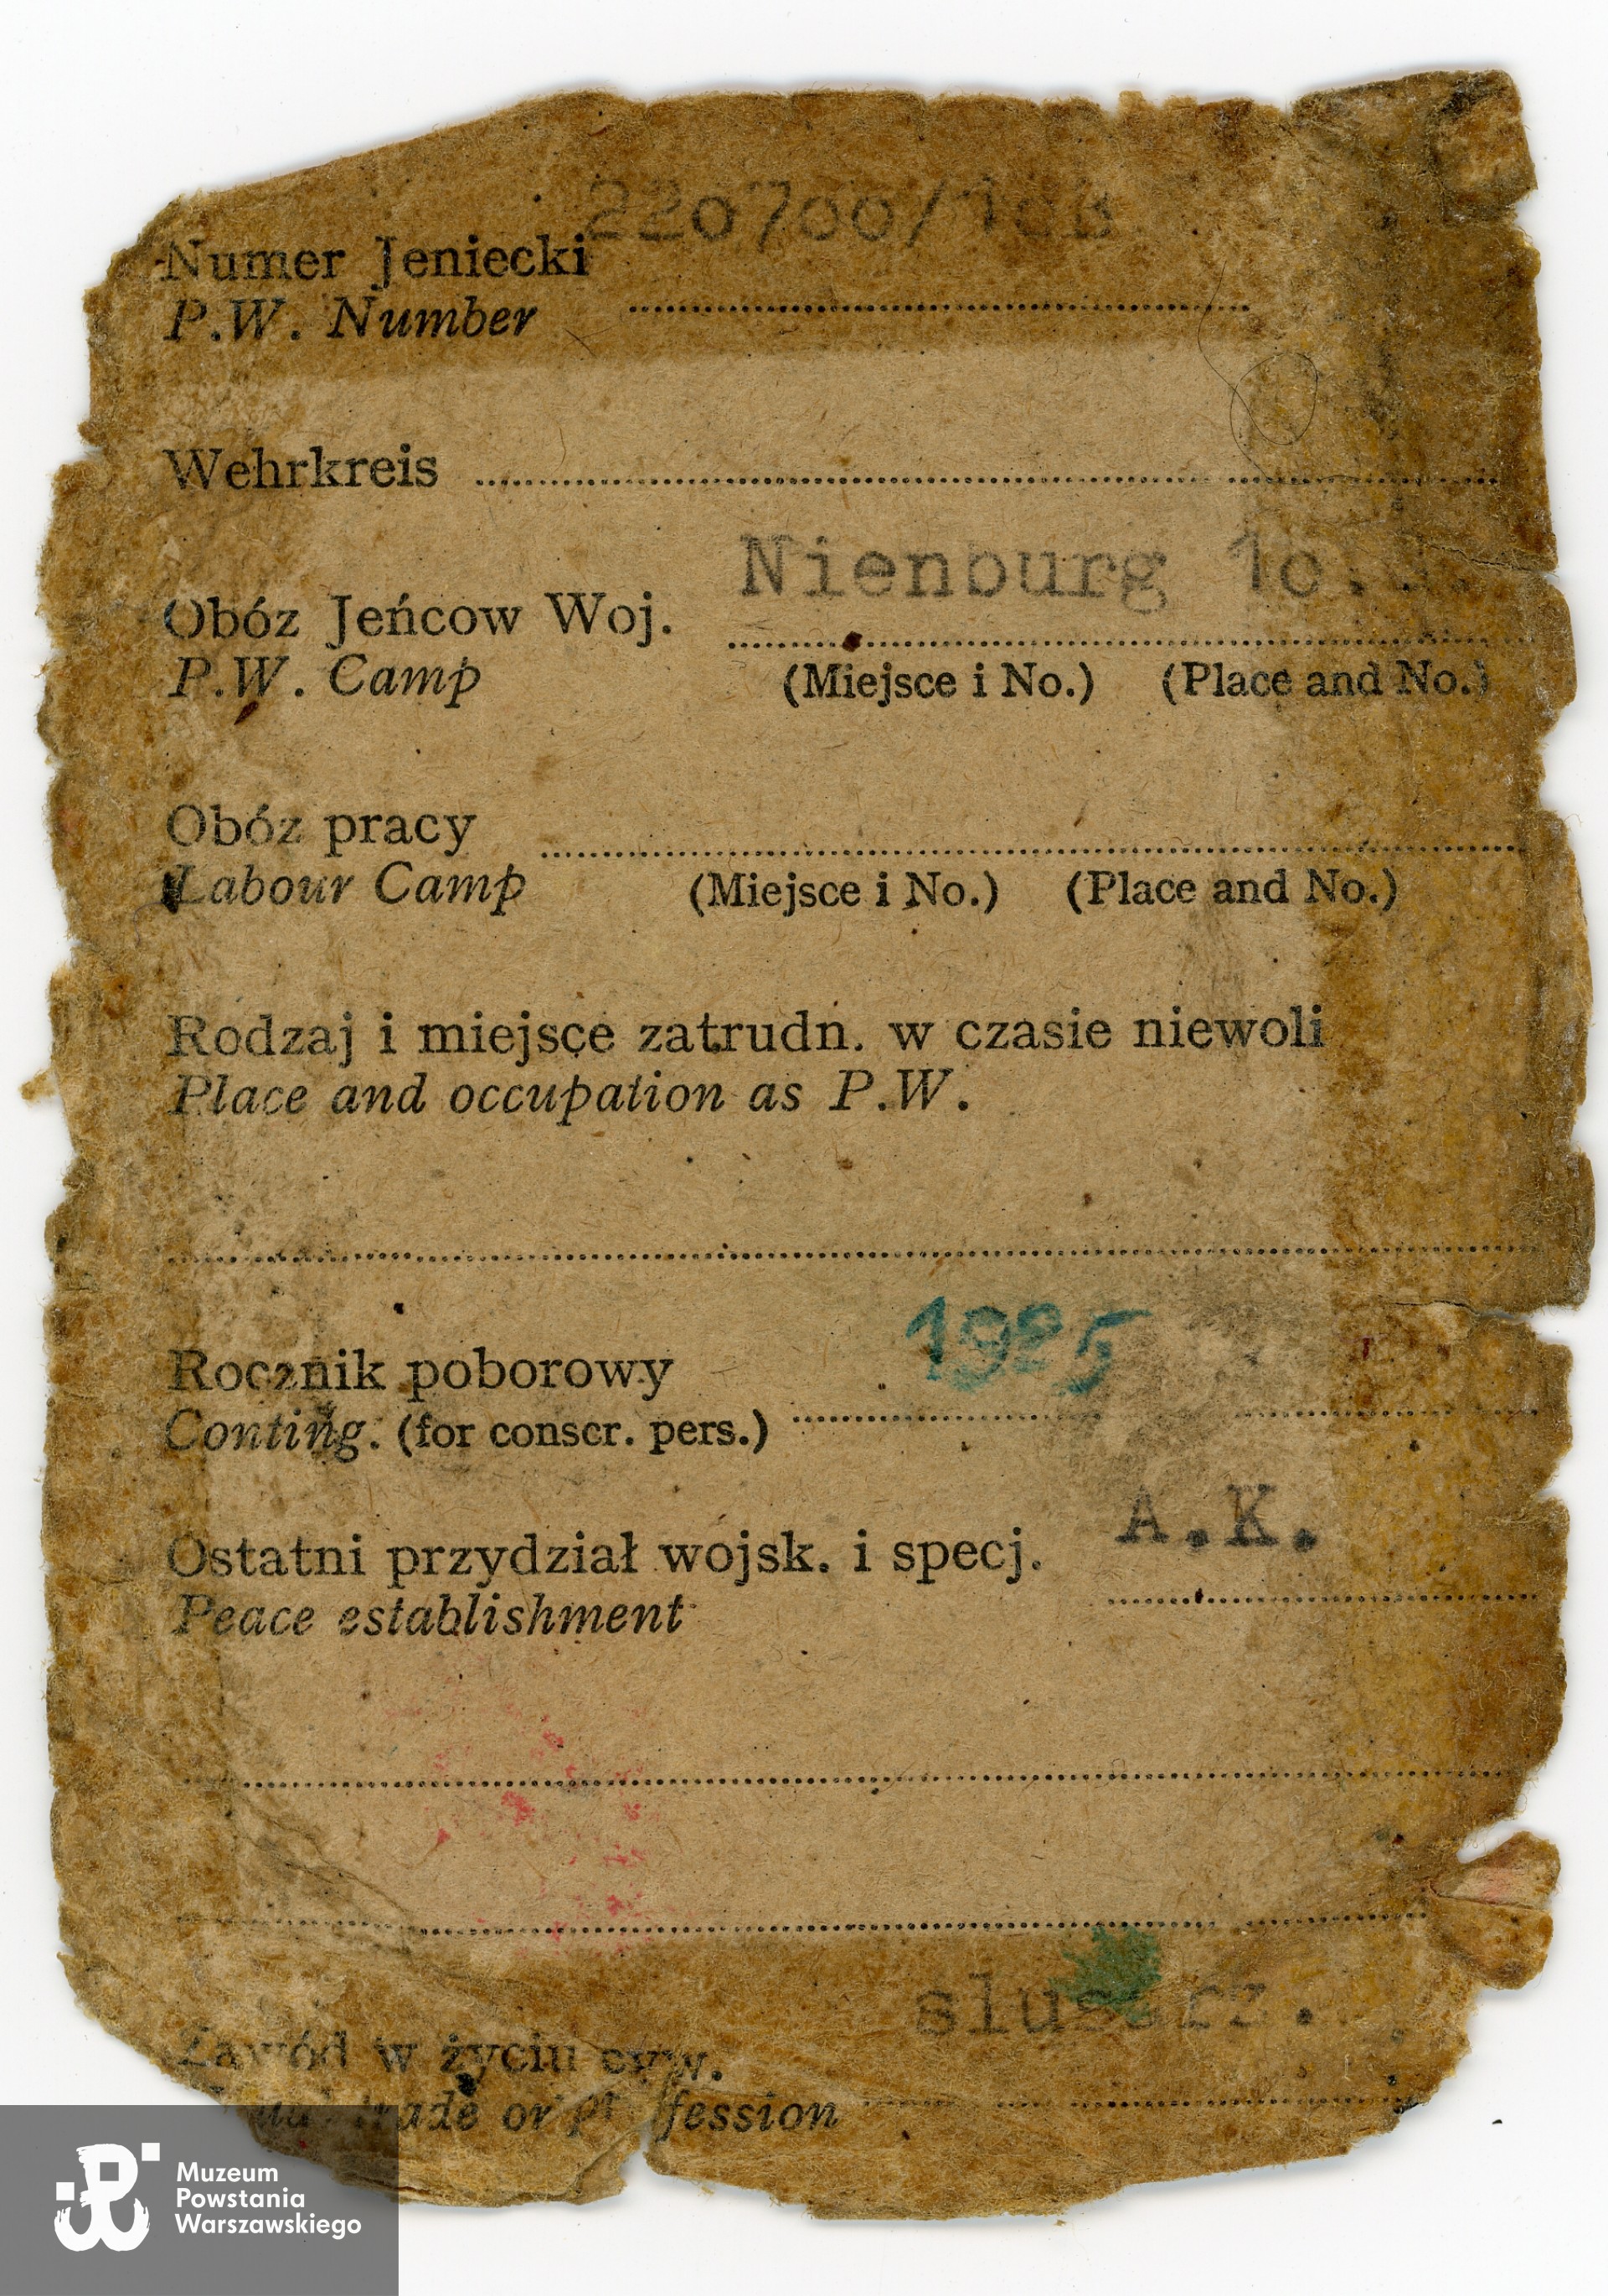 220700/10B
Numer Jeniecki
P.W. Number
Wehrkreis
Nienburg 10.
Obóz Jeńcow Woj.
P.W. Camp (Miejsce i No.) (Place and No.)
Obóz pracy
Labour Camp (Miejsce i No.) (Place and No.)
Rodzaj i miejsce zatrudn. w czasie niewoli
Place and occupation as P.W.
1925
Rocznik poborowy
Conting. (for conscr. pers.)
A.K.
Ostatni przydział wojsk. i specj.
Peace establishment
slusarz.
Zawód w życiu cyw.
trade or profession
Muzeum
Powstania
Warszawskiego